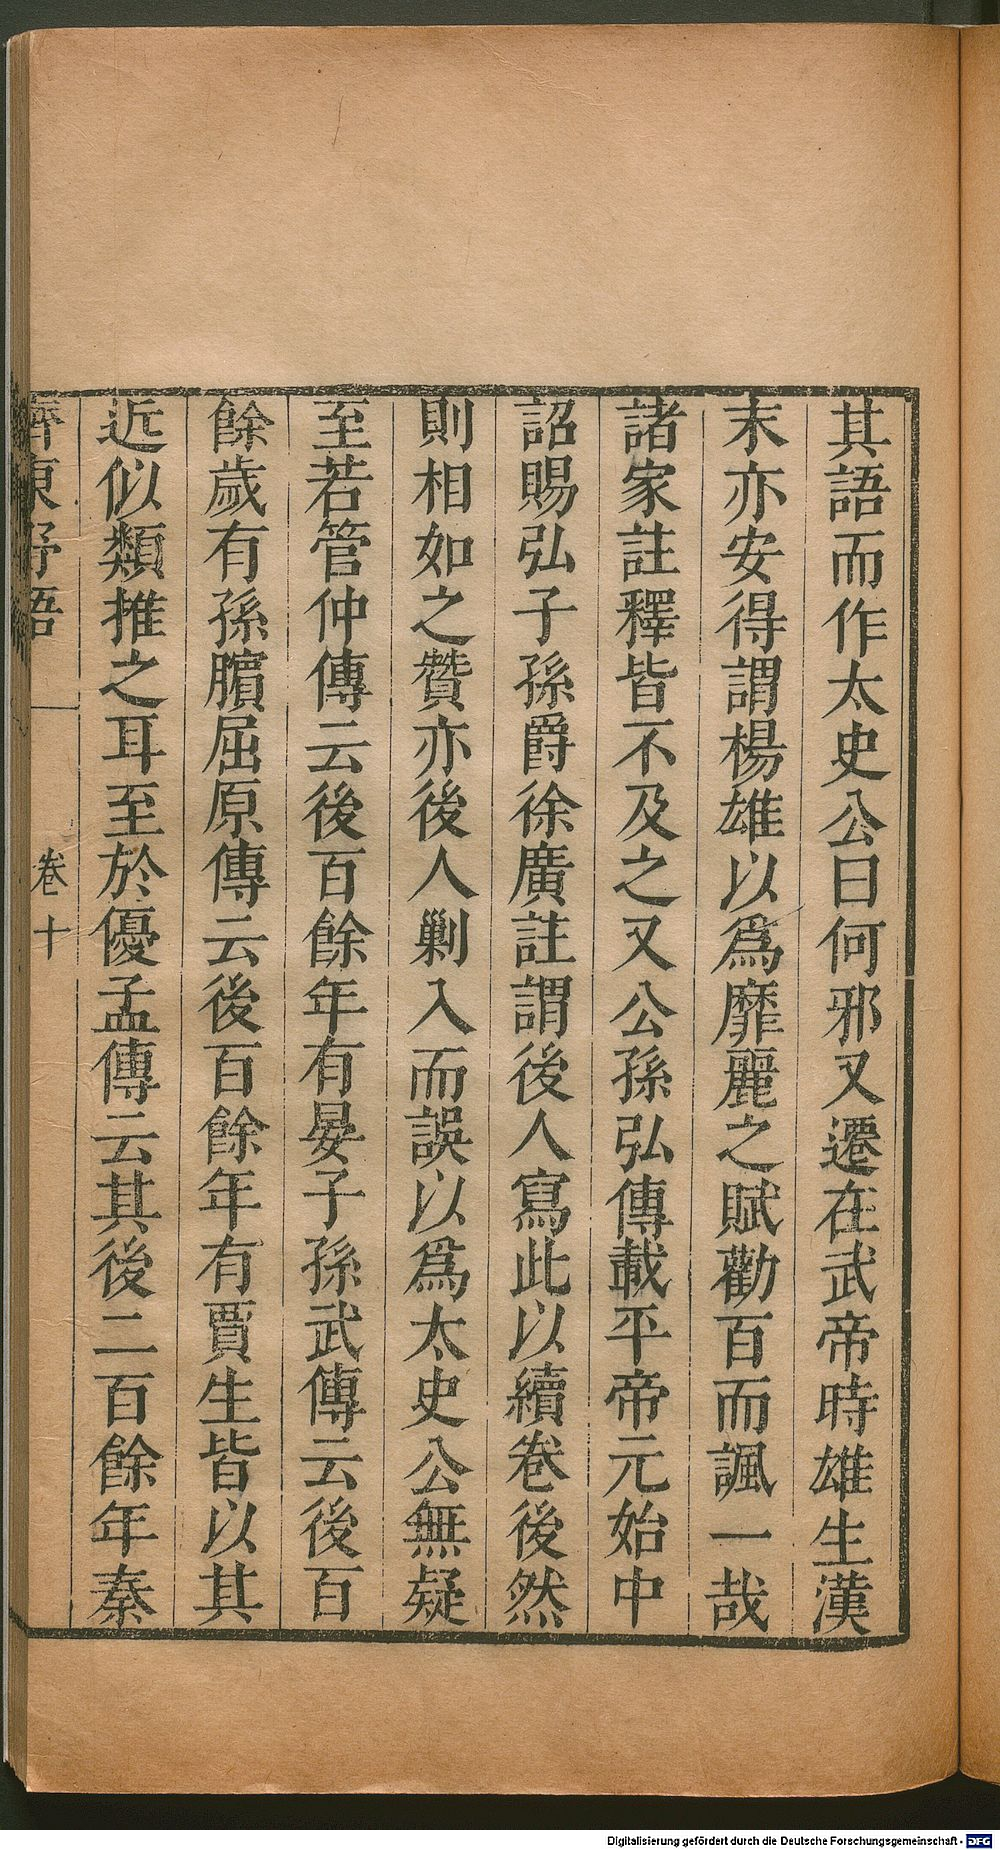 其語而作太史公曰何邪又遷在武帝時雄生漢
末亦安得謂楊雄以為靡麗之賦勸百而諷一哉
諸家註釋皆不及之又公孫弘傳載平帝元始中
詔賜弘子孫爵徐廣註謂後人寫此以續卷後然
則相如之贊亦後人剿入而誤以為太史公無疑
至若管仲傳云後百餘年有晏子孫武傳云後百
餘歲有孫臏屈原傳云後百餘年有賈生皆以其
近似類推之耳至於優孟傳云其後二百餘年秦
齊東野語 卷十
Digitalisierung gefördert durch die Deutsche Forschungsgemeinschaft - DFG